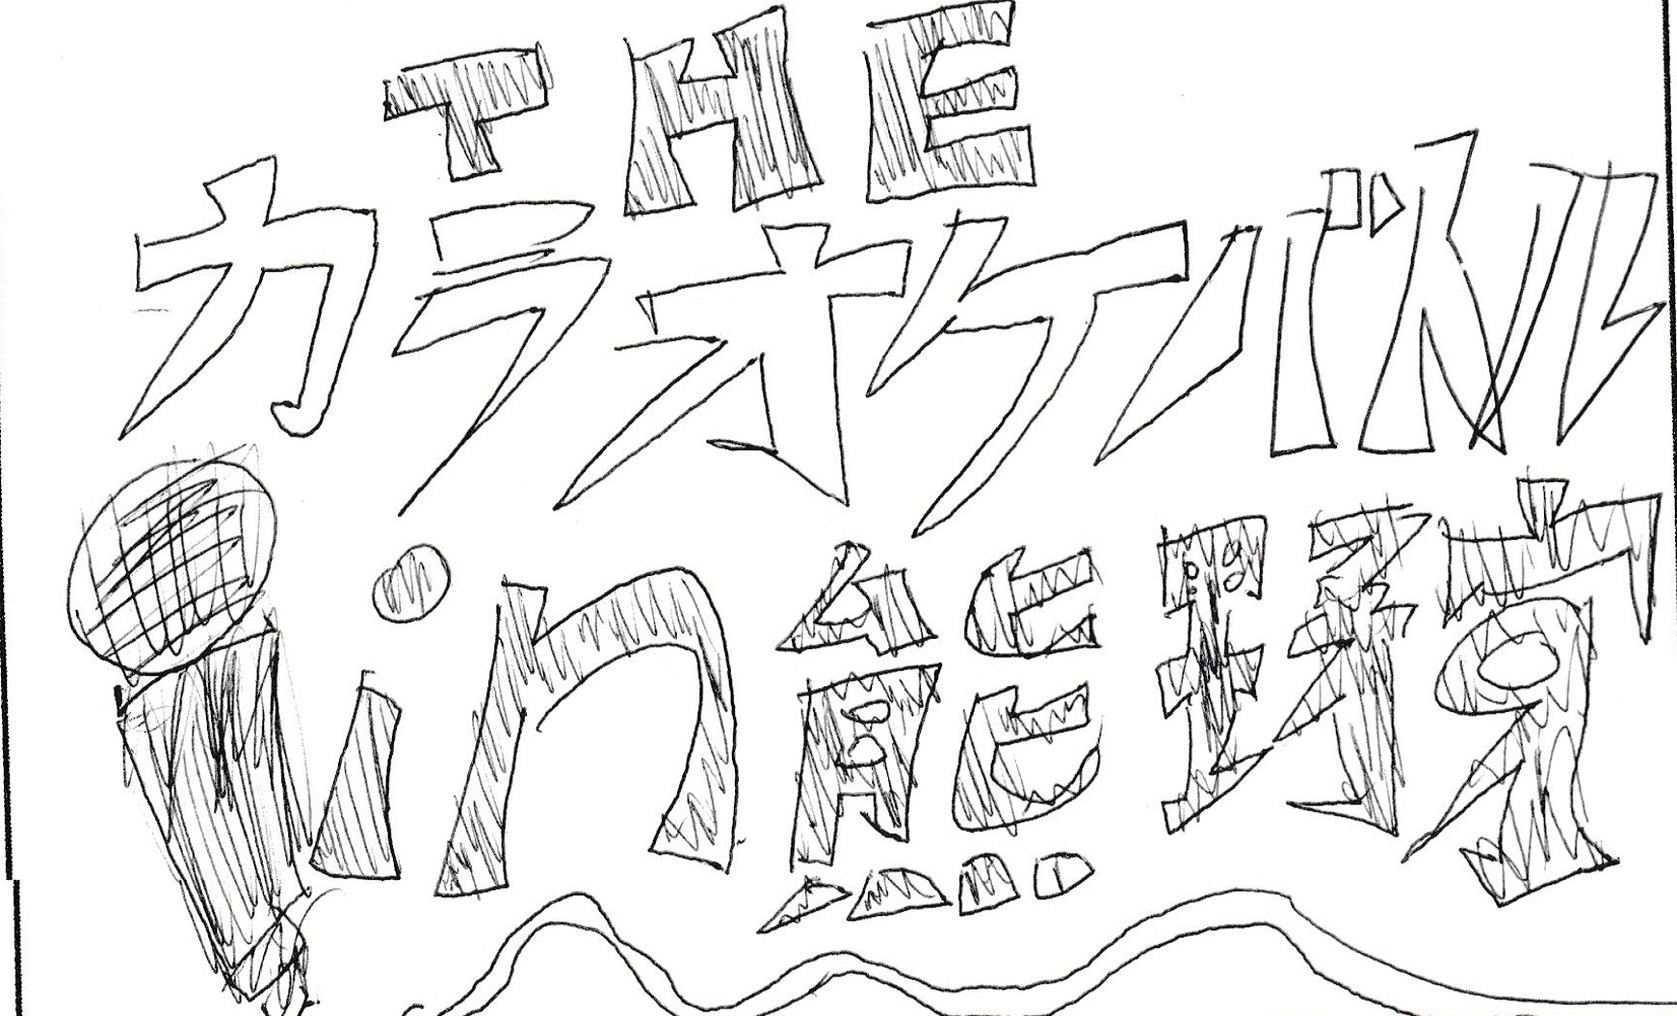 THE
カラオケバトル
in 熊野寮